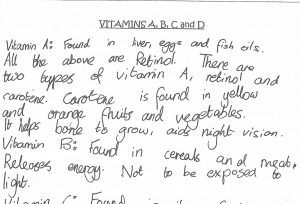 VITAMINS A, B, C and D
Vitamin A: Found in liver, eggs and fish oils.
All the above are Retinol. There are
two types of vitamin A, retinol and
carotene. Carotene is found in yellow
and orange fruits and vegetables.
It helps bone to grow, aids night vision.
Vitamin B: Found in cereals and meat.
Releases energy. Not to be exposed to
light.
Vitamin C: Found in